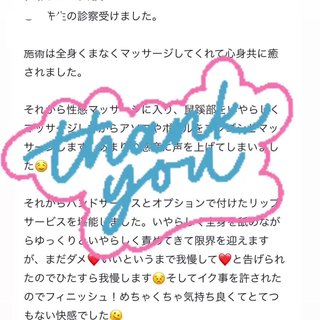 の診察受けました。
施術は全身くまなくマッサージしてくれて心身共に癒
されました。
それから性感マッサージに入り、鼠蹊部をいやらしく
マッサージしながらアソコ
サージします 声を上げてしまいまし
た😌
thank
you
それからハンドサービスとオプションで付けたリップ
サービスを堪能しました。いやらしく全身を舐めなが
らゆっくりといやらしく責めてきて限界を迎えます
が、まだダメ❤️いいというまで我慢して❤️と告げられ
たのでひたすら我慢します😣そしてイク事を許された
のでフィニッシュ！めちゃくちゃ気持ち良くてとてつ
もない快感でした🫠